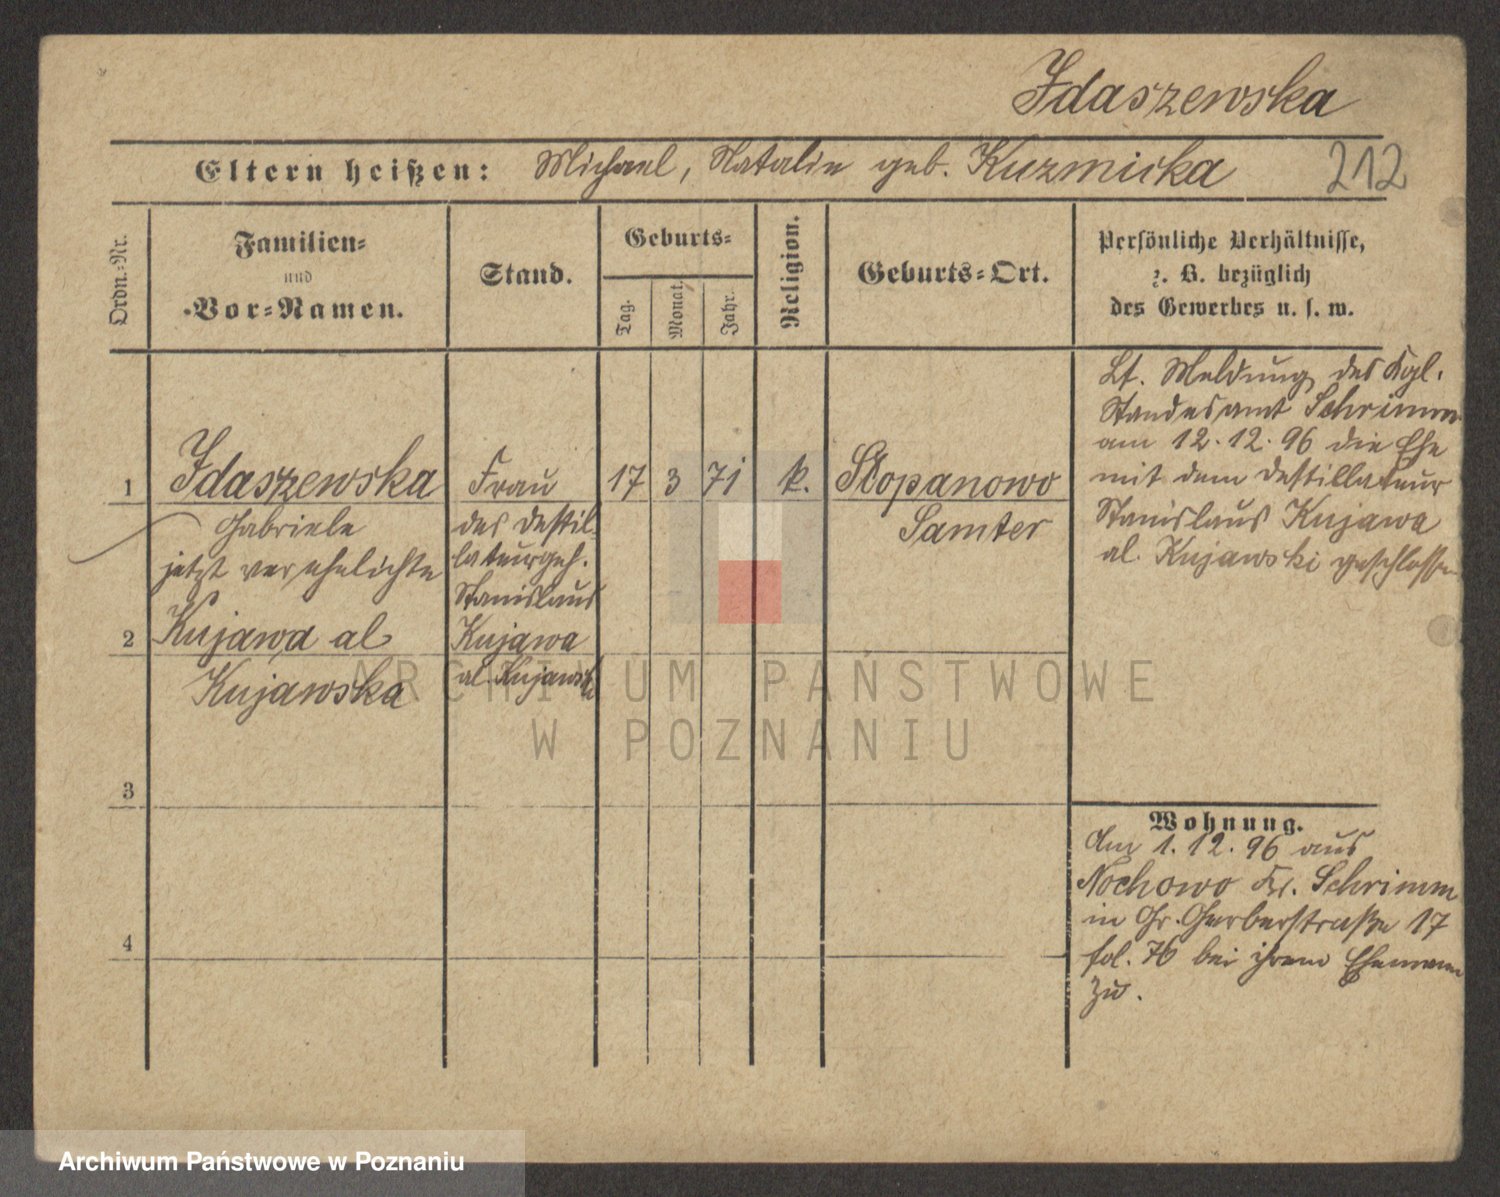 Idaszewska
Eltern heißen: Michael, Natalie geb. Kuzmicka 212
Ordn.-Nr.
Familien-
und
Vor-Namen.
Stand.
Geburts-
Tag.
Monat.
Jahr.
Religion.
Geburts-Ort.
Persönliche Verhältnisse,
z. B. bezüglich
des Gewerbes u. s. w.
1 Idaszewska Frau 17 3 71 k. Stopanowo
Gabriele
jetzt verehelichte
2 Kujawa al
Kujawska
des Destil-
lateurgeh.
Stanislaus
Kujawa
al Kujawski
Samter
Lt. Meldung des Kgl.
Standesamt Schrimm
am 12.12.96 die Ehe
mit dem Destillateur
Stanislaus Kujawa
al. Kujawski geschlossen
3
4
Wohnung.
Am 1.12.96 aus
Nochowo Kr. Schrimm
in Gr. Gerberstraße 17
fol. 76 bei ihrem Ehemann
zu.
ARCHIWUM PAŃSTWOWE
W POZNANIU
Archiwum Państwowe w Poznaniu